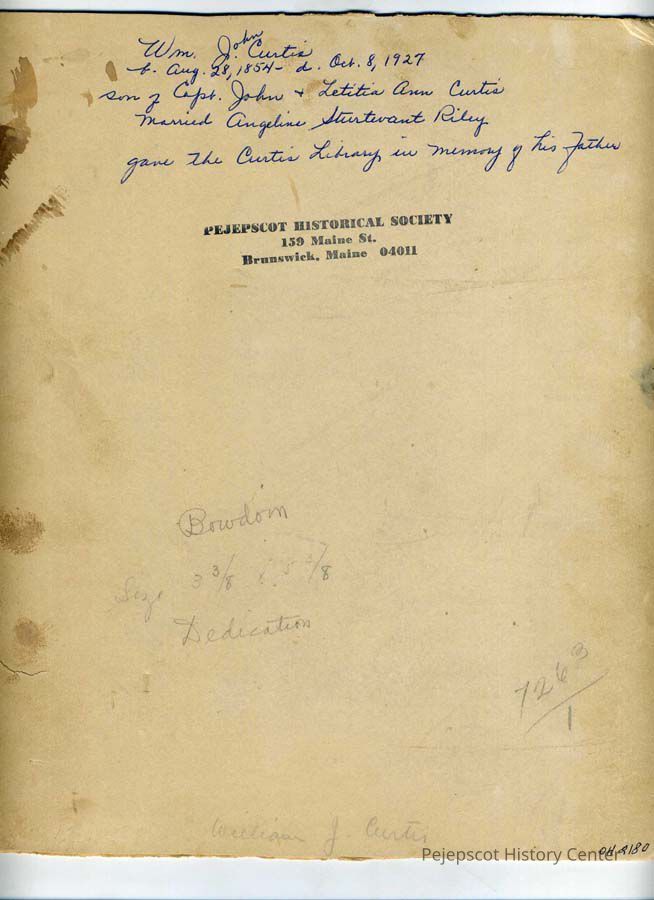 Wm. J. John Curtis
b. Aug. 28, 1854 - d. Oct. 8, 1927
son of Capt. John + Letitia Ann Curtis
Married Angeline Sturtevant Riley
gave the Curtis Library in memory of his Father
PEJEPSCOT HISTORICAL SOCIETY
159 Maine St.
Brunswick, Maine 04011
Bowdoin
Size 3 3/8 x 5 3/8
Dedication
7263/1
William J. Curtis
Pejepscot History Center
OH 2180